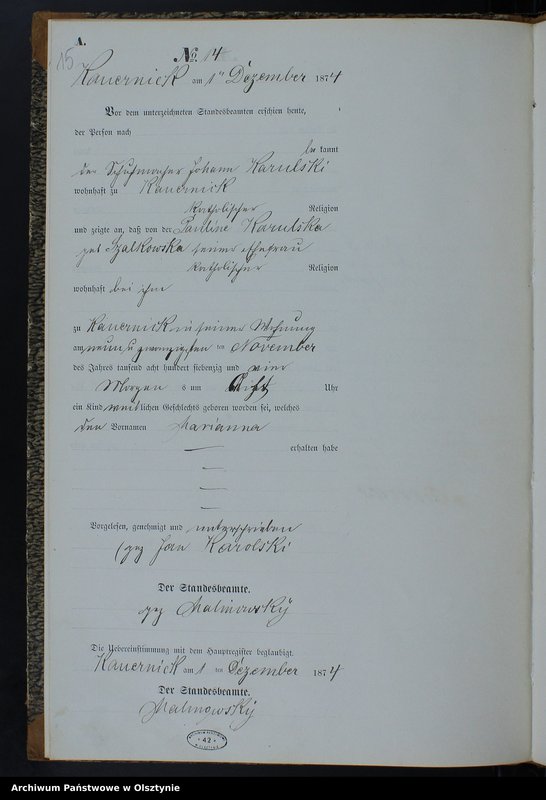 A.
15
No. 14
Kauernick am 1n Dezember 1874
Vor dem unterzeichneten Standesbeamten erschien heute,
der Person nach
be kannt
der Schuhmacher Johann Karulski
wohnhaft zu Kauernick
katholischer Religion
und zeigte an, daß von der Pauline Karulska
geb Szalkowska seiner Ehefrau
katholischer Religion
wohnhaft bei ihm
zu Kauernick in seiner Wohnung
am neun u zwanzigsten ten November
des Jahres tausend acht hundert siebenzig und vier
Morgen s um Acht Uhr
ein Kind weiblichen Geschlechts geboren worden sei, welches
den Vornamen Marianna
erhalten habe
Vorgelesen, genehmigt und unterschrieben
(gez Jan Karolski
Der Standesbeamte.
gez Malinowsky
Die Uebereinstimmung mit dem Hauptregister beglaubigt.
Kauernick am 1 ten Dezember 1874
Der Standesbeamte.
Malinowsky
42
Archiwum Państwowe w Olsztynie